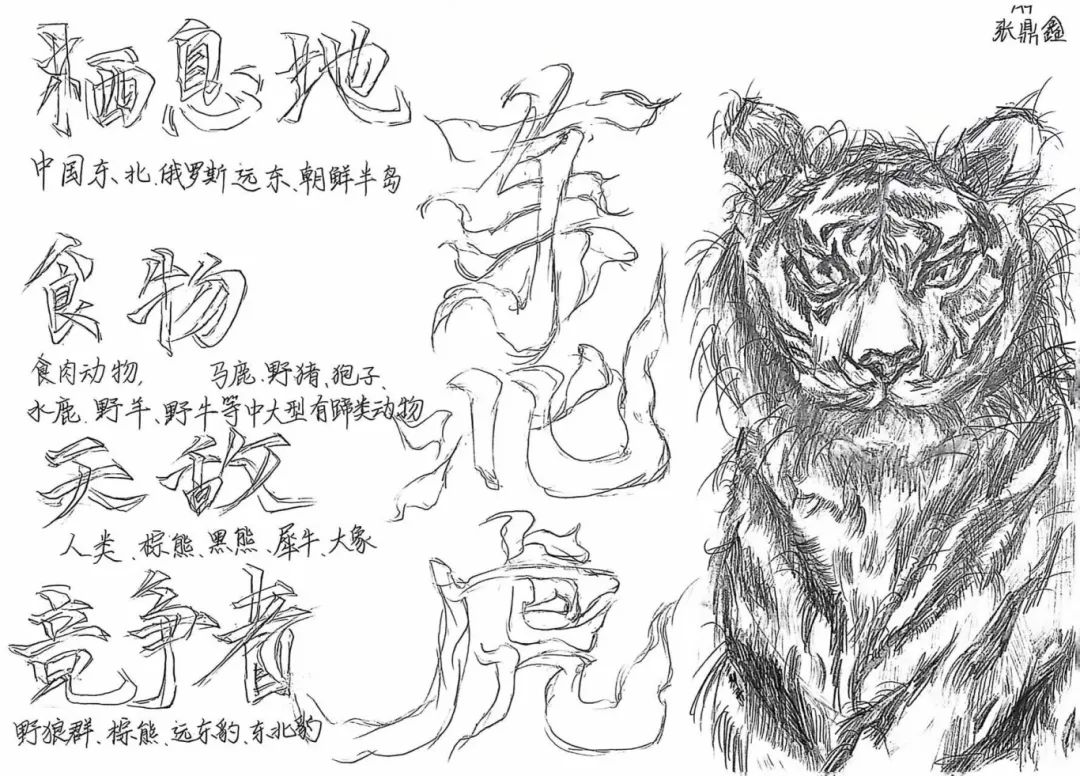 张鼎鑫
栖息地
中国东、北、俄罗斯远东、朝鲜半岛
食物
食肉动物, 马鹿、野猪、狍子、
水鹿、野羊、野牛等中大型有蹄类动物
天敌
人类、棕熊、黑熊、犀牛、大象
竞争者
野狼群、棕熊、远东豹、东北豹
东北虎